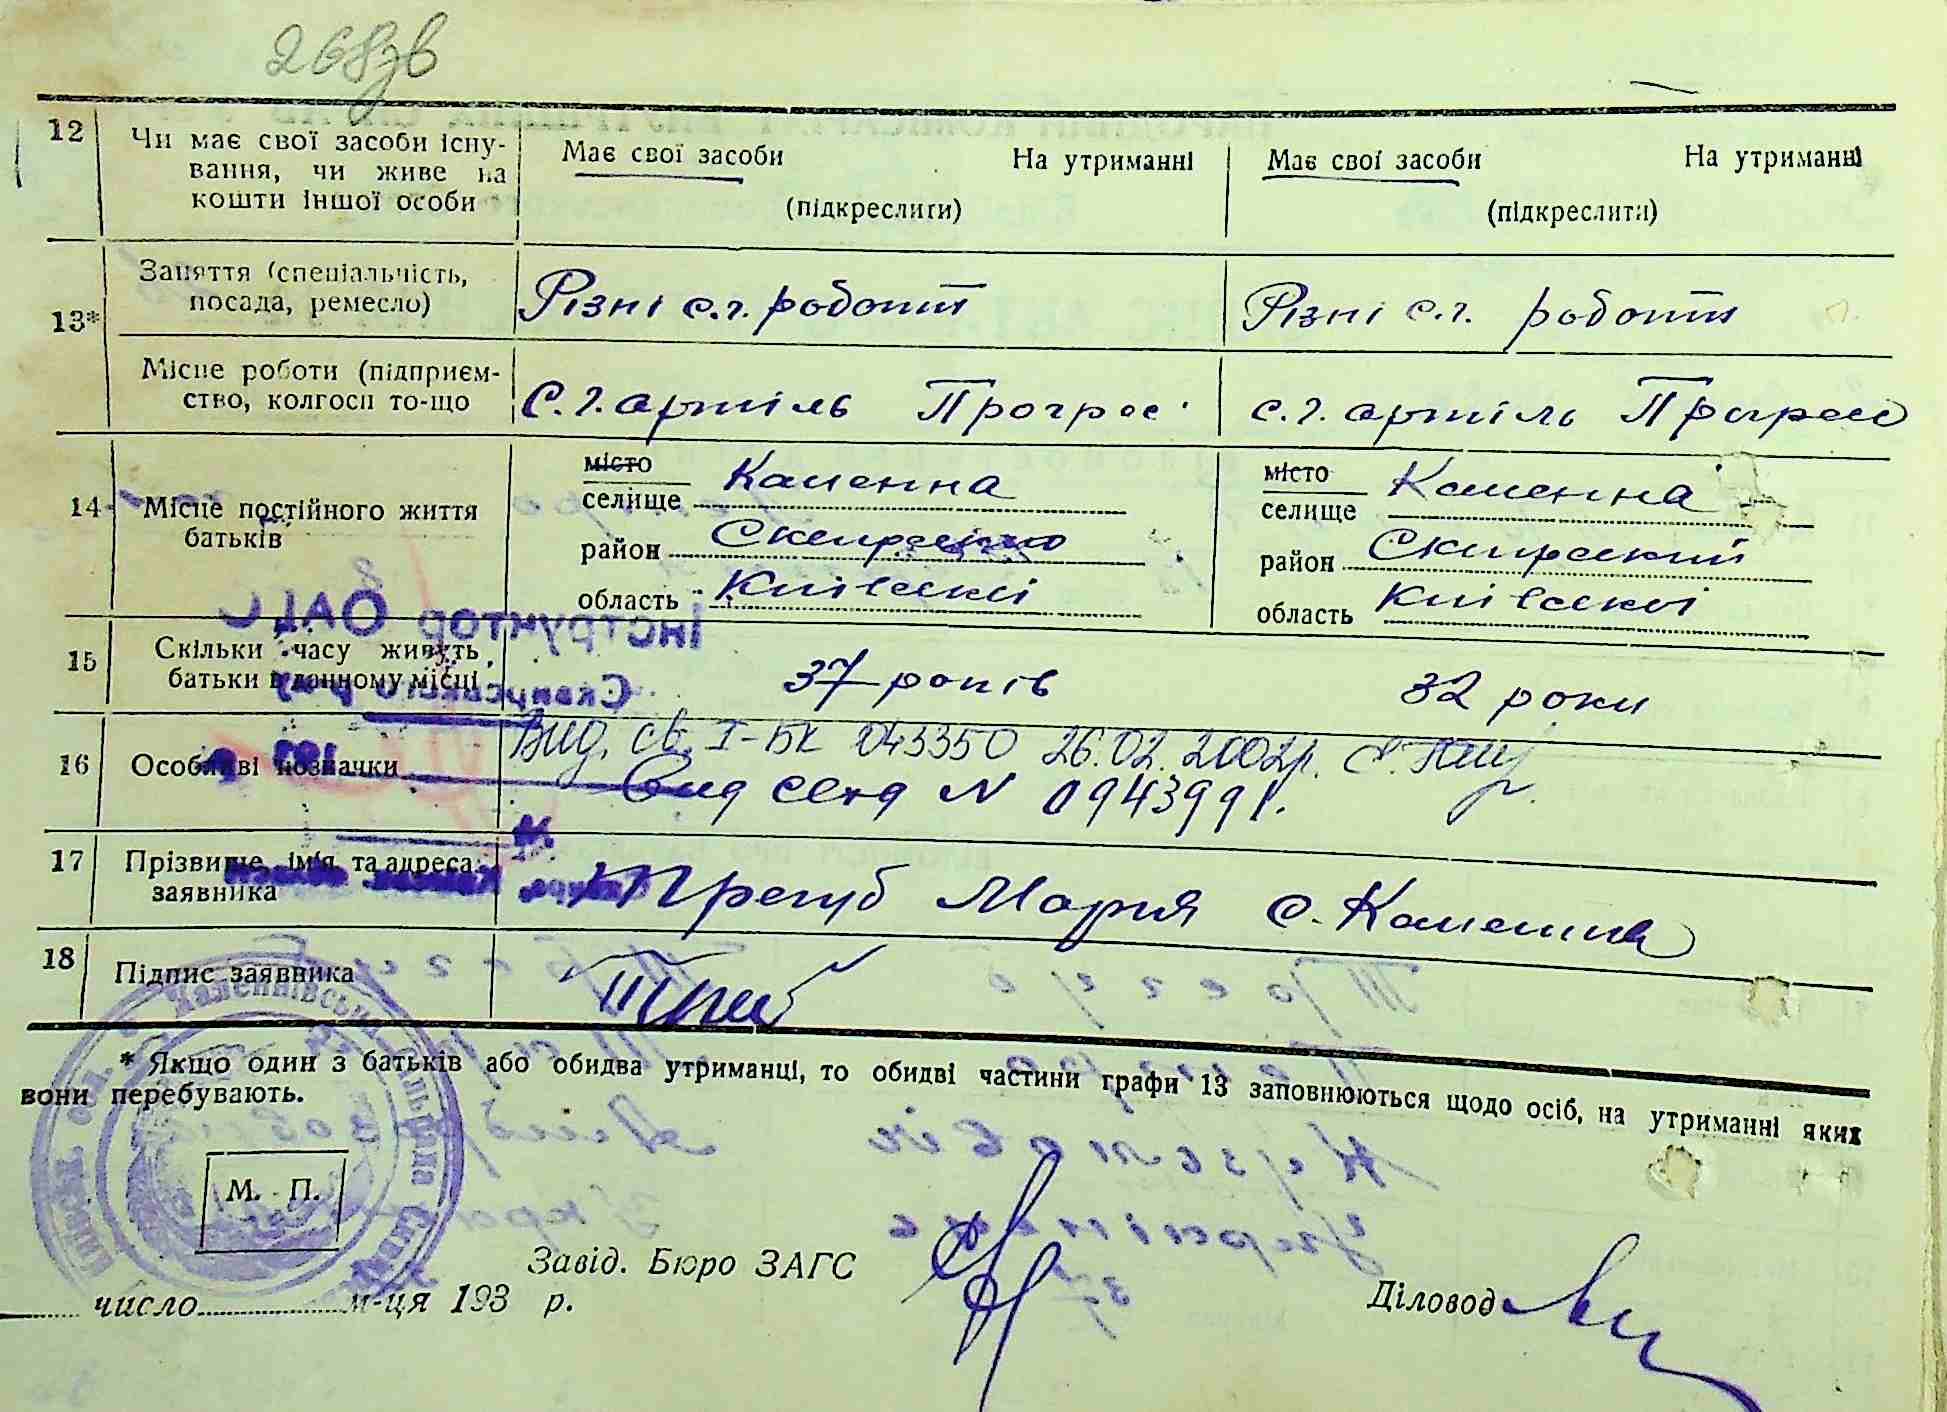 268зв
12 Чи має свої засоби існу-
вання, чи живе на
кошти іншої особи
Має свої засоби На утриманні
(підкреслити)
Має свої засоби На утриманні
(підкреслити)
13* Заняття (спеціальність,
посада, ремесло)
Різні с.г. роботи
Різні с.г. роботи
Місце роботи (підприєм-
ство, колгосп то-що
С.г. артіль Прогрес
с.г. артіль Прогрес
14 Місце постійного життя
батьків
місто
селище Каменна
район
область Київській
місто
селище Каменна
район Сквирський
область Київській
15 Скільки часу живуть
батьки в данному місці
37 років
32 роки
16 Особливі позначки
Вид. св. І-БК 043350 26.02.2002р.
Вид свид N 0943991.
17 Прізвище, ім'я та адреса
заявника
Трегуб Мария с. Каменна
18 Підпис заявника
* Якщо один з батьків або обидва утриманці, то обидві частини графи 13 заповнюються щодо осіб, на утриманні яких
вони перебувають.
М. П.
Завід. Бюро ЗАГС
Діловод
число м-ця 193 р.